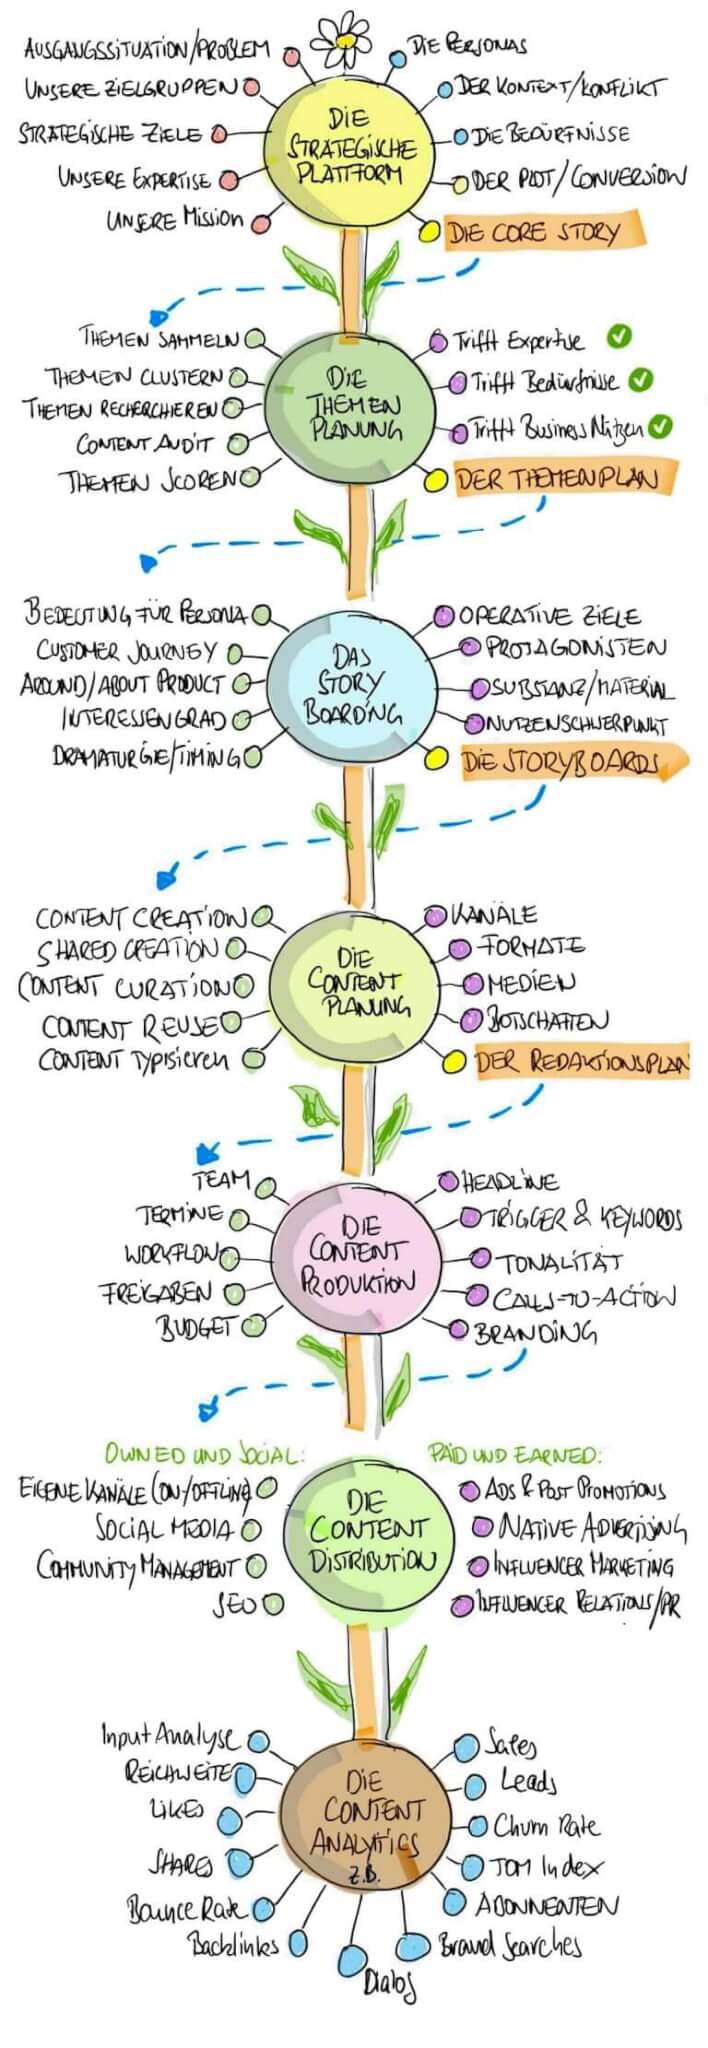 AUSGANGSSITUATION/PROBLEM
UNSERE ZIELGRUPPEN
STRATEGISCHE ZIELE
UNSERE EXPERTISE
UNSERE MISSION
DIE
STRATEGISCHE
PLATTFORM
DIE PERSONAS
DER KONTEXT/KONFLIKT
DIE BEDÜRFNISSE
DER PLOT/CONVERSION
DIE CORE STORY
THEMEN SAMMELN
THEMEN CLUSTERN
THEMEN RECHERCHIEREN
CONTENT AUDIT
THEMEN SCOREN
DIE
THEMEN
PLANUNG
Trifft Expertise
Trifft Bedürfnisse
Trifft Business Nutzen
DER THEMENPLAN
BEDEUTUNG FÜR PERSONA
CUSTOMER JOURNEY
AROUND/ABOUT PRODUCT
INTERESSENGRAD
DRAMATURGIE/TIMING
DAS
STORY
BOARDING
OPERATIVE ZIELE
PROTAGONISTEN
SUBSTANZ/MATERIAL
NUTZENSCHWERPUNKT
DIE STORYBOARDS
CONTENT CREATION
SHARED CREATION
CONTENT CURATION
CONTENT REUSE
CONTENT Typisieren
DIE
CONTENT
PLANUNG
KANÄLE
FORMATE
MEDIEN
BOTSCHAFTEN
DER REDAKTIONSPLAN
TEAM
TERMINE
WORKFLOW
FREIGABEN
BUDGET
DIE
CONTENT
PRODUKTION
HEADLINE
TRIGGER & KEYWORDS
TONALITÄT
CALLS-TO-ACTION
BRANDING
OWNED UND SOCIAL:
EIGENE KANÄLE (ON/OFFLINE)
SOCIAL MEDIA
COMMUNITY MANAGEMENT
SEO
DIE
CONTENT
DISTRIBUTION
PAID UND EARNED:
ADS & POST PROMOTIONS
NATIVE ADVERTISING
INFLUENCER MARKETING
INFLUENCER RELATIONS/PR
Input Analyse
REICHWEITE
LIKES
SHARES
Bounce Rate
Backlinks
DIE
CONTENT
ANALYTICS
Z.B.
Sales
Leads
Churn Rate
TOM Index
ABONNENTEN
Brand Searches
Dialog